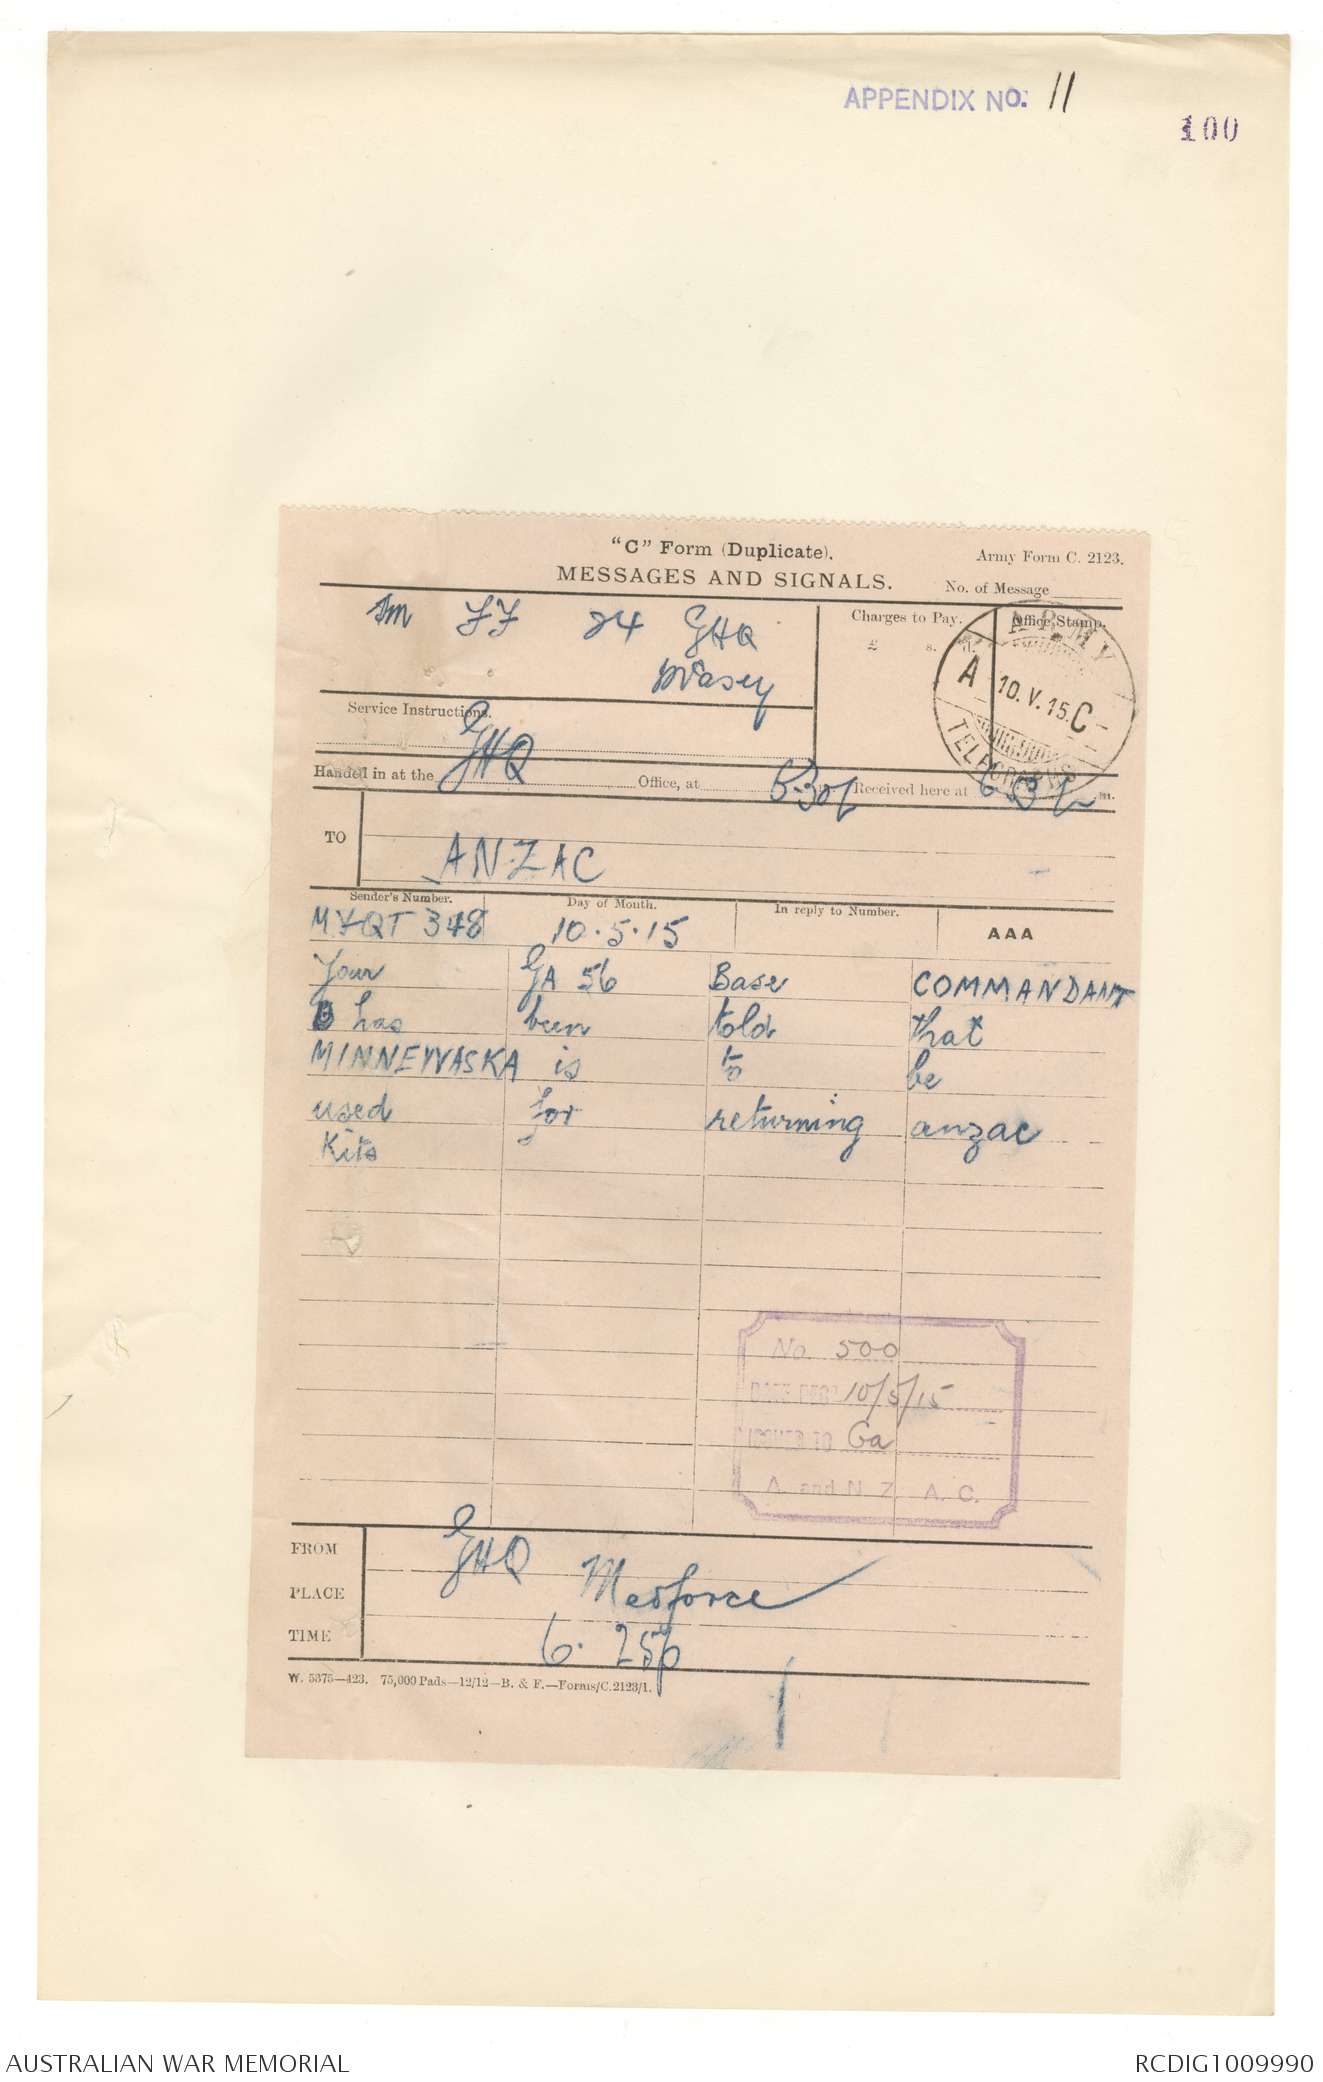 APPENDIX NO. 11
100
"C" Form (Duplicate).
Army Form C. 2123.
MESSAGES AND SIGNALS.
No. of Message
Sm JJ 24 GHQ
Charges to Pay.
£ s. d.
Office Stamp.
ARMY
A 10.V.15. C
TELEGRAPHS
Service Instructions.
GHQ
Handed in at the Office, at 5-30p Received here at m.
TO
ANZAC
Sender's Number. Day of Month. In reply to Number.
348 10.5.15 AAA
Your GA 56 Base COMMANDANT
has been told that
MINNEWASKA is to be
used for returning anzac
Kits
No. 500
DATE RECD 10/5/15
ISSUED TO Ga
A. and N. Z. A. C.
FROM
GHQ Medforce
PLACE
TIME
6. 25p
W. 5375—423. 75,000 Pads—12/12—B. & F.—Forms/C.2123/1.
AUSTRALIAN WAR MEMORIAL
RCDIG1009990